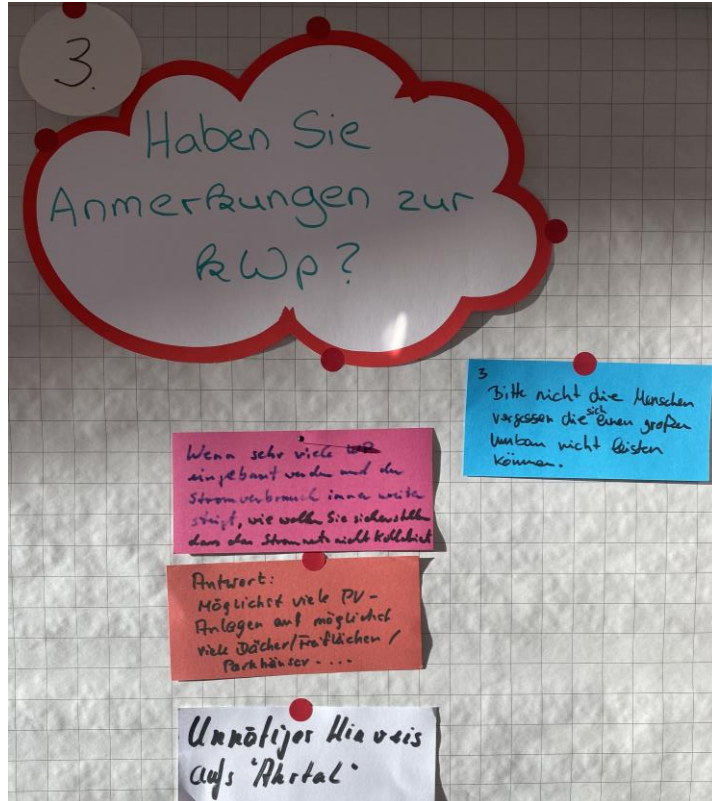 3.
Haben Sie
Anmerkungen zur
kWp?
3
Bitte nicht die Menschen
vergessen die sich einen großen
Umbau nicht leisten
können.
Wenn sehr viele WP
eingebaut werden und der
Stromverbrauch immer weiter
steigt, wie wollen Sie sicherstellen
dass das Stromnetz nicht kollabiert
Antwort:
Möglichst viele PV-
Anlagen auf möglichst
viele Dächer/Freiflächen/
Parkhäuser....
Unnötiger Hinweis
aufs "Ahrtal"